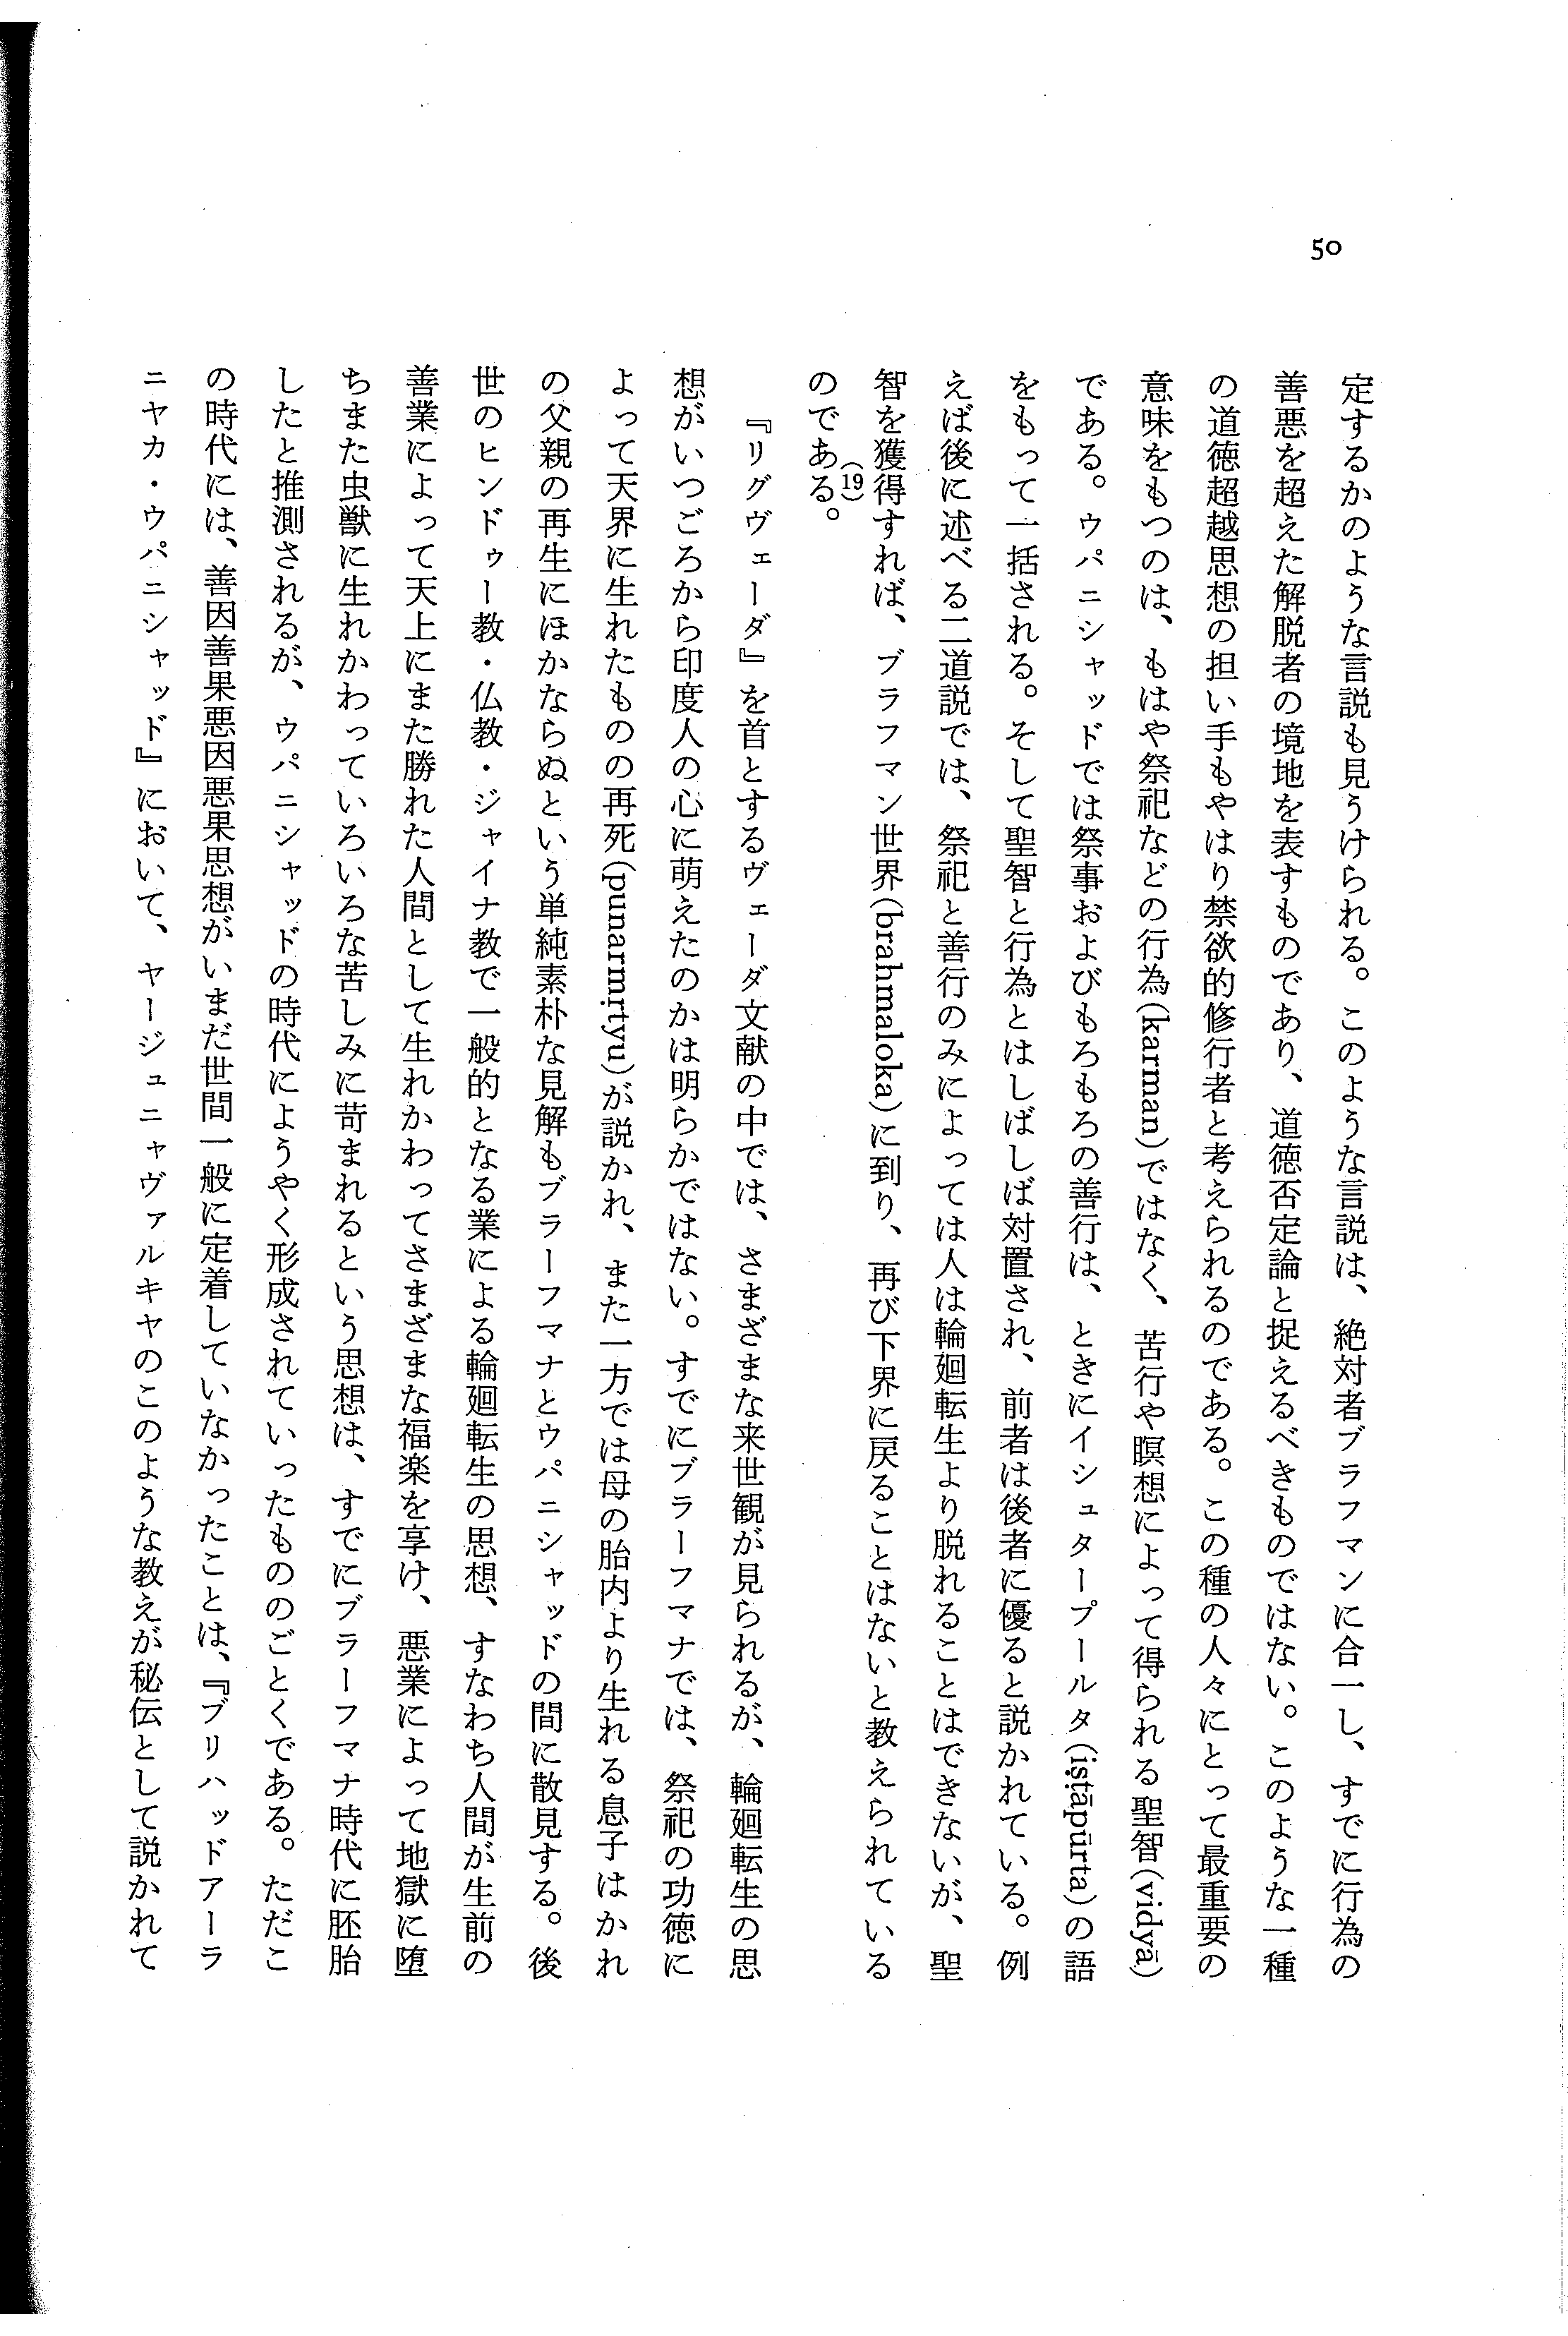 50
定するかのような言説も見うけられる。このような言説は、絶対者ブラフマンに合一し、すでに行為の
善悪を超えた解脱者の境地を表すものであり、道徳否定論と捉えるべきものではない。このような一種
の道徳超越思想の担い手もやはり禁欲的修行者と考えられるのである。この種の人々にとって最重要の
意味をもつのは、もはや祭祀などの行為(karman)ではなく、苦行や瞑想によって得られる聖智(vidyā)
である。ウパニシャッドでは祭事およびもろもろの善行は、ときにイシュタープールタ(iṣṭāpūrta)の語
をもって一括される。そして聖智と行為とはしばしば対置され、前者は後者に優ると説かれている。例
えば後に述べる二道説では、祭祀と善行のみによっては人は輪廻転生より脱れることはできないが、聖
智を獲得すれば、ブラフマン世界(brahmaloka)に到り、再び下界に戻ることはないと教えられている
のである。(19)
『リグヴェーダ』を首とするヴェーダ文献の中では、さまざまな来世観が見られるが、輪廻転生の思
想がいつごろから印度人の心に萌えたのかは明らかではない。すでにブラーフマナでは、祭祀の功徳に
よって天界に生れたものの再死(punarmṛtyu)が説かれ、また一方では母の胎内より生れる息子はかれ
の父親の再生にほかならぬという単純素朴な見解もブラーフマナとウパニシャッドの間に散見する。後
世のヒンドゥー教・仏教・ジャイナ教で一般的となる業による輪廻転生の思想、すなわち人間が生前の
善業によって天上にまた勝れた人間として生れかわってさまざまな福楽を享け、悪業によって地獄に堕
ちまた虫獣に生れかわっていろいろな苦しみに苛まれるという思想は、すでにブラーフマナ時代に胚胎
したと推測されるが、ウパニシャッドの時代にようやく形成されていったもののごとくである。ただこ
の時代には、善因善果悪因悪果思想がいまだ世間一般に定着していなかったことは、『ブリハッドアーラ
ニヤカ・ウパニシャッド』において、ヤージュニャヴァルキヤのこのような教えが秘伝として説かれて